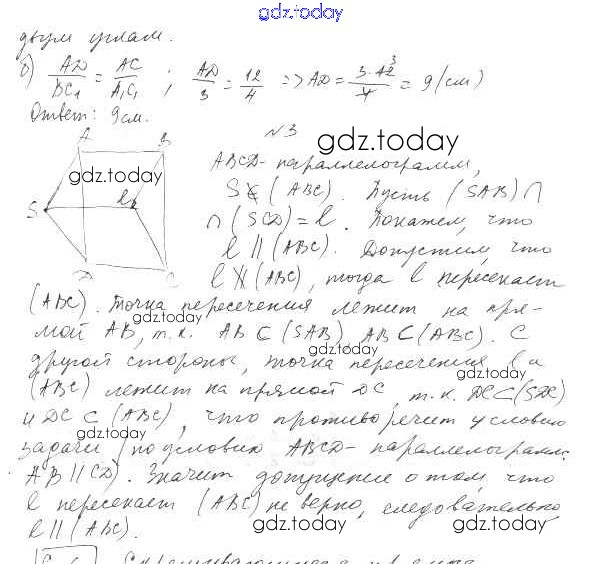 gdz.today
двум углам.
б) AD/DC₁ = AC/A₁C₁ ; AD/3 = 12/4 => AD = 3·12³/4 = 9 (см)
Ответ: 9 см.
№3
gdz.today
A B
gdz.today
S l
D C
ABCD - параллелограмм,
S ∉ (ABC). Пусть (SAB) ∩
∩ (SCD) = l. Покажем, что
l || (ABC). Допустим, что
l ∦ (ABC), тогда l пересекает
(ABC). Точка пересечения лежит на пря-
gdz.today
мой AB, т.к. AB ⊂ (SAB), AB ⊂ (ABC). С
gdz.today
другой стороны, точка пересечения l и
gdz.today
(ABC) лежит на прямой DC, т.к. DC ⊂ (SDC)
и DC ⊂ (ABC), что противоречит условию
gdz.today
задачи (по условию ABCD - параллелограмм:
AB || CD). Значит допущение о том, что
l пересекает (ABC) не верно, следовательно
gdz.today gdz.today
l || (ABC).